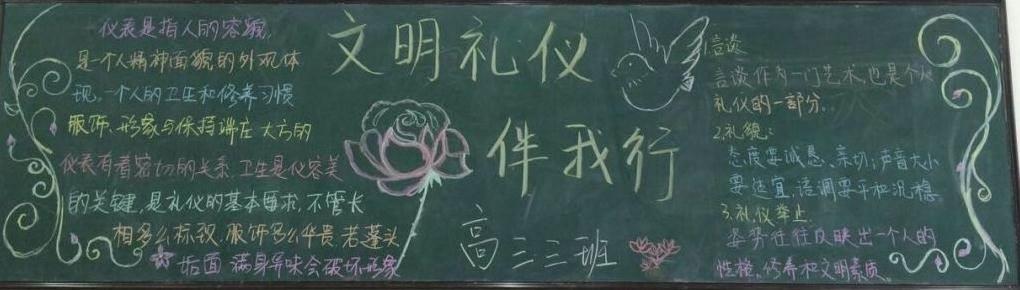 仪表是指人的容貌,
是一个人精神面貌的外观体
现,一个人的卫生和修养习惯
服饰、形象与保持端庄大方的
仪表有着密切的关系.卫生是仪容美
的关键,是礼仪的基本要求,不管长
相多么标致.服饰多么华贵.若蓬头
垢面 满身异味会破坏形象
文明礼仪
伴我行
高三三班
1.言谈
言谈作为一门艺术,也是个人
礼仪的一部分.
2.礼貌:
态度要诚恳、亲切;声音大小
要适宜,语调要平和沉稳
3.礼仪举止.
姿势往往反映出一个人的
性格、修养和文明素质.